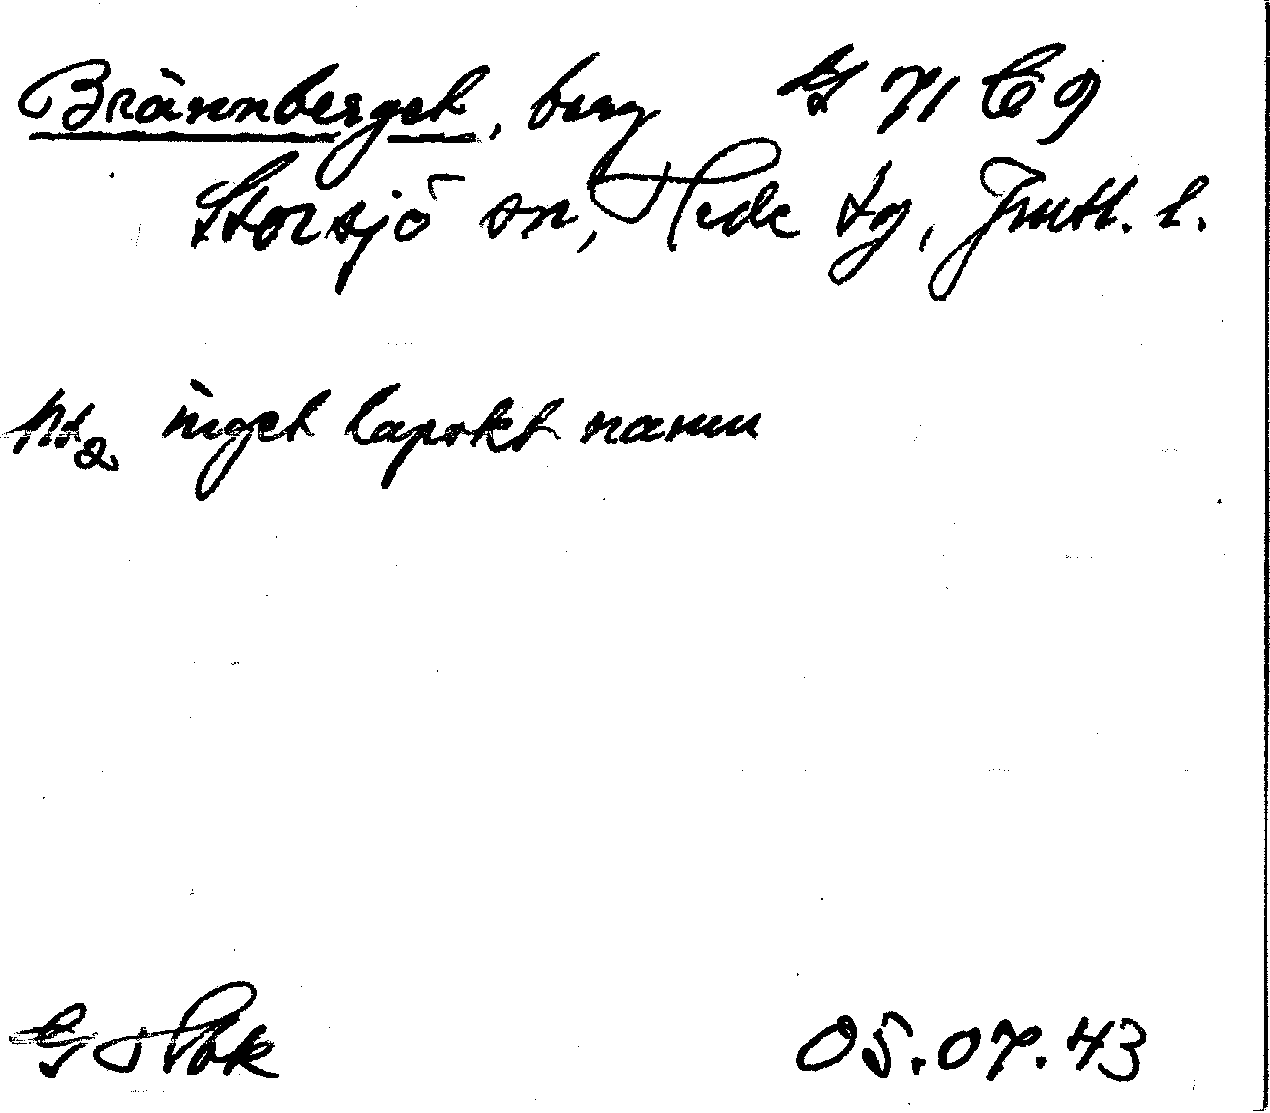 Brännberget, berg G 71 C 9
Storsjö sn, Hede tg, Jmtl. l.
inget lapskt namn
05.07.43